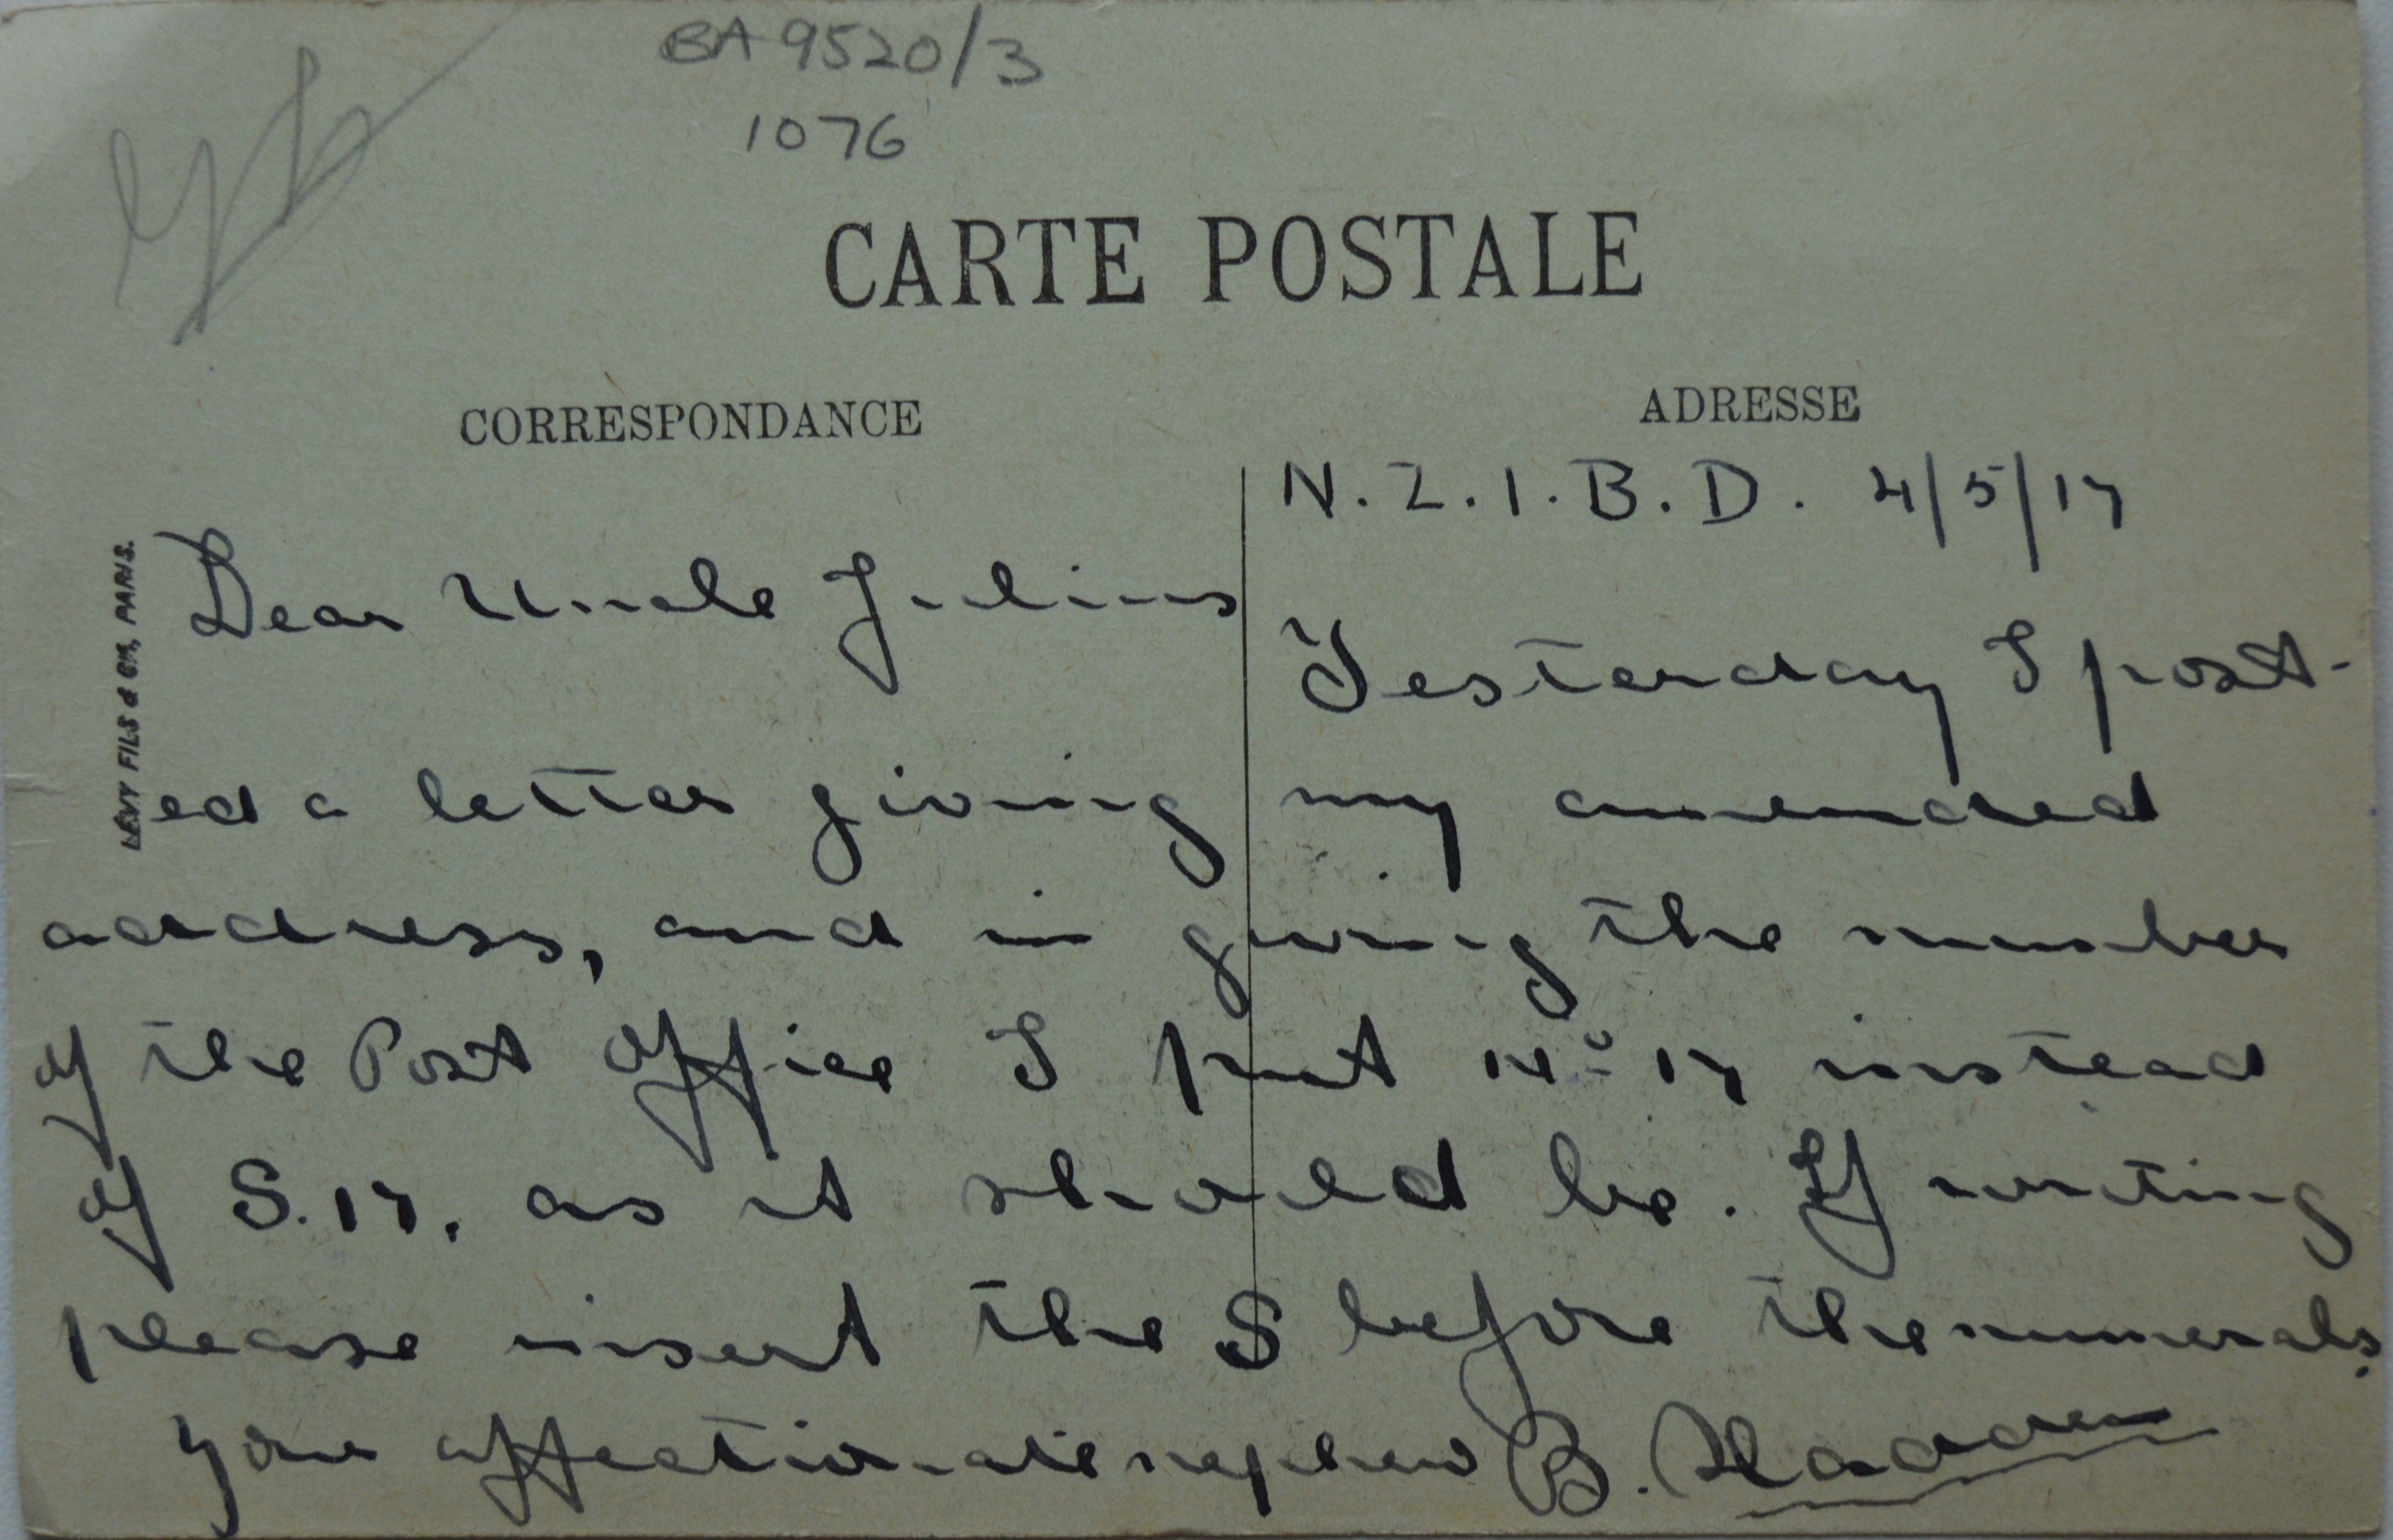 BA 9520/3
1076
CARTE POSTALE
CORRESPONDANCE
ADRESSE
LÉVY FILS & Cie, PARIS.
N.Z.I.B.D. 4/5/17
Dear Uncle Julius
Yesterday I post-
ed a letter giving my amended
address, and in giving the number
of the Post Office I put No 17 instead
of S.17. as it should be. If writing
please insert the S before the numerals.
Your affectionate nephew B.